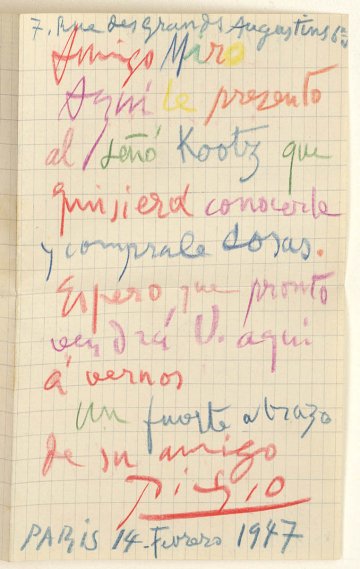 7, Rue des Grands Augustins 6e
Amigo Miro
Aqui le presento
al señó Kootz que
quisiera conocerle
y comprale cosas.
Espero que pronto
vendrá V. aqui
á vernos
Un fuerte abrazo
de su amigo
Picasso
PARIS 14-Febrero 1947